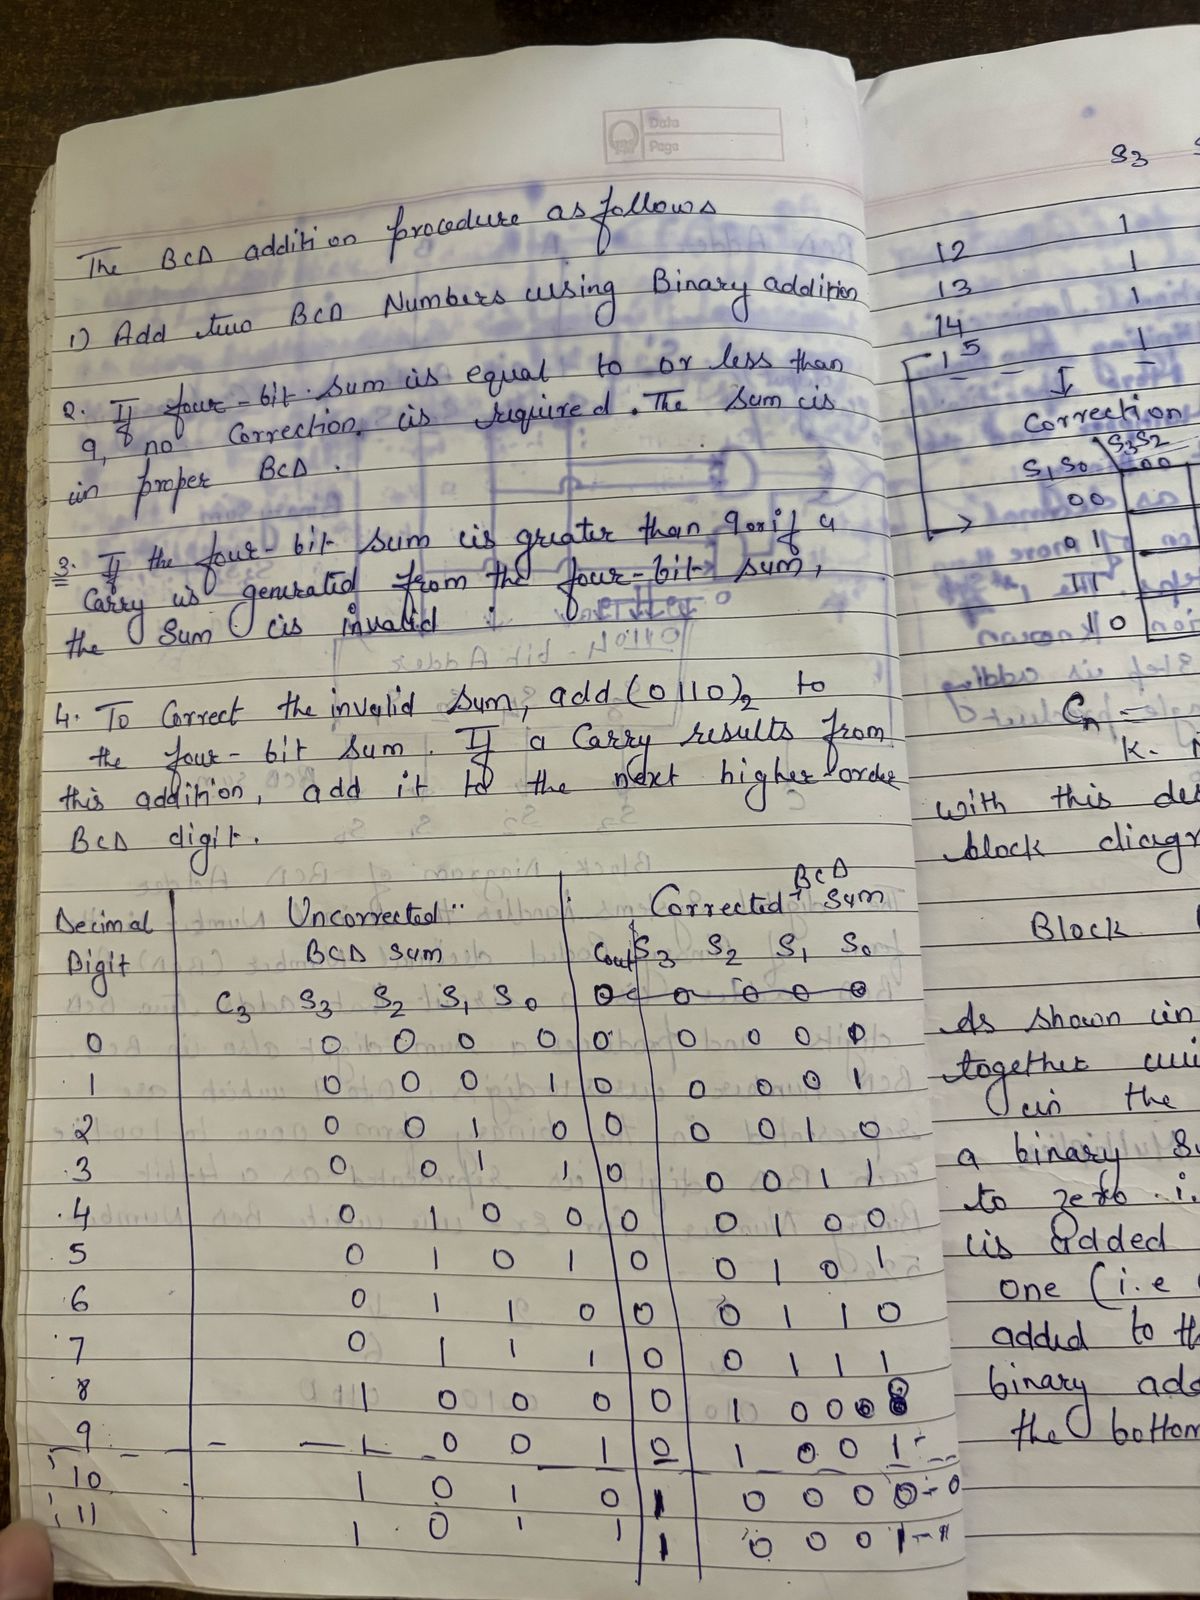 Data
Page
The BCD addition procedure as follows
1) Add two BCD Numbers using Binary addition
2. If four-bit sum is equal to or less than
9, no Correction is required. The Sum is
in proper BCD.
3. If the four-bit Sum is greater than 9 or if a
Carry is generated from the four-bit sum,
the Sum is invalid
4. To Correct the invalid Sum, add (0110)2 to
the four-bit Sum. If a Carry results from
this addition, add it to the next higher-order
BCD digit.
Decimal Uncorrected Corrected BCD Sum
Digit BCD Sum Cout S3 S2 S1 S0
C3 S3 S2 S1 S0 0 0 0 0 0
0 0 0 0 0 0 0 0 0 0
1 0 0 0 1 0 0 0 0 1
2 0 0 1 0 0 0 0 1 0
3 0 0 1 1 0 0 0 1 1
4 0 1 0 0 0 0 1 0 0
5 0 1 0 1 0 0 1 0 1
6 0 1 1 0 0 0 1 1 0
7 0 1 1 1 0 0 1 1 1
8 1 0 0 0 0 1 0 0 0
9 1 0 0 1 0 1 0 0 1
10 1 0 1 0 1 0 0 0 0 - 0
11 1 0 1 1 1 0 0 0 1 -
S3
12 1
13 1
14 1
15 1
Correction
S1S0 S3S2
00
00
01
11
10
Cn =
K-
with this
block
Block
As shown in
together
in the
a binary
to zero
is added
one (i.e
added to
binary
the bottom